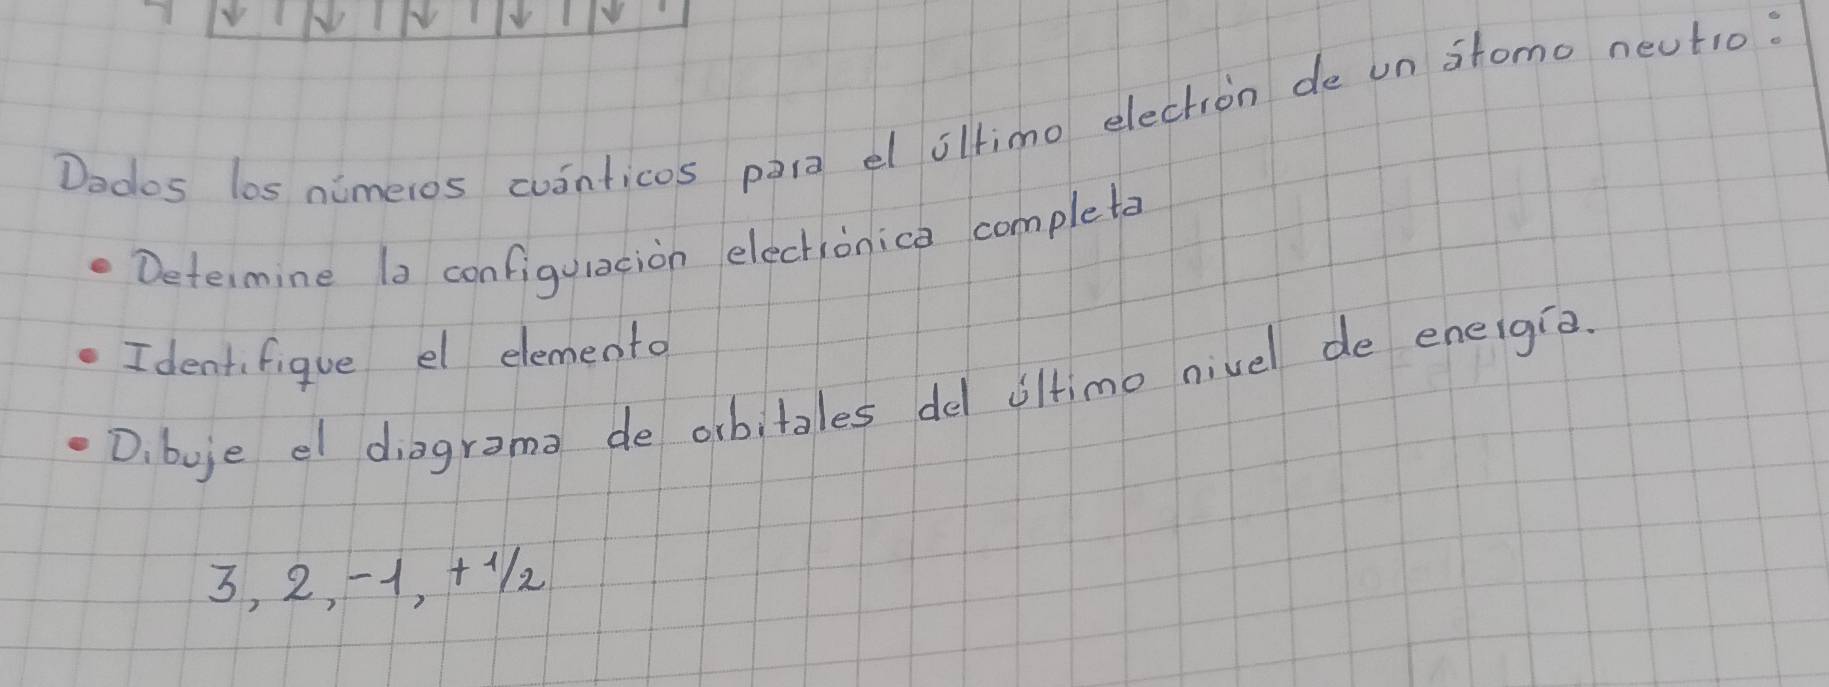 Dados los números cuánticos para el último electrón de un átomo neutro:
• Determine la configuración electrónica completa
• Identifique el elemento
• Dibuje el diagrama de orbitales del último nivel de energía.
3, 2, -1, +1/2